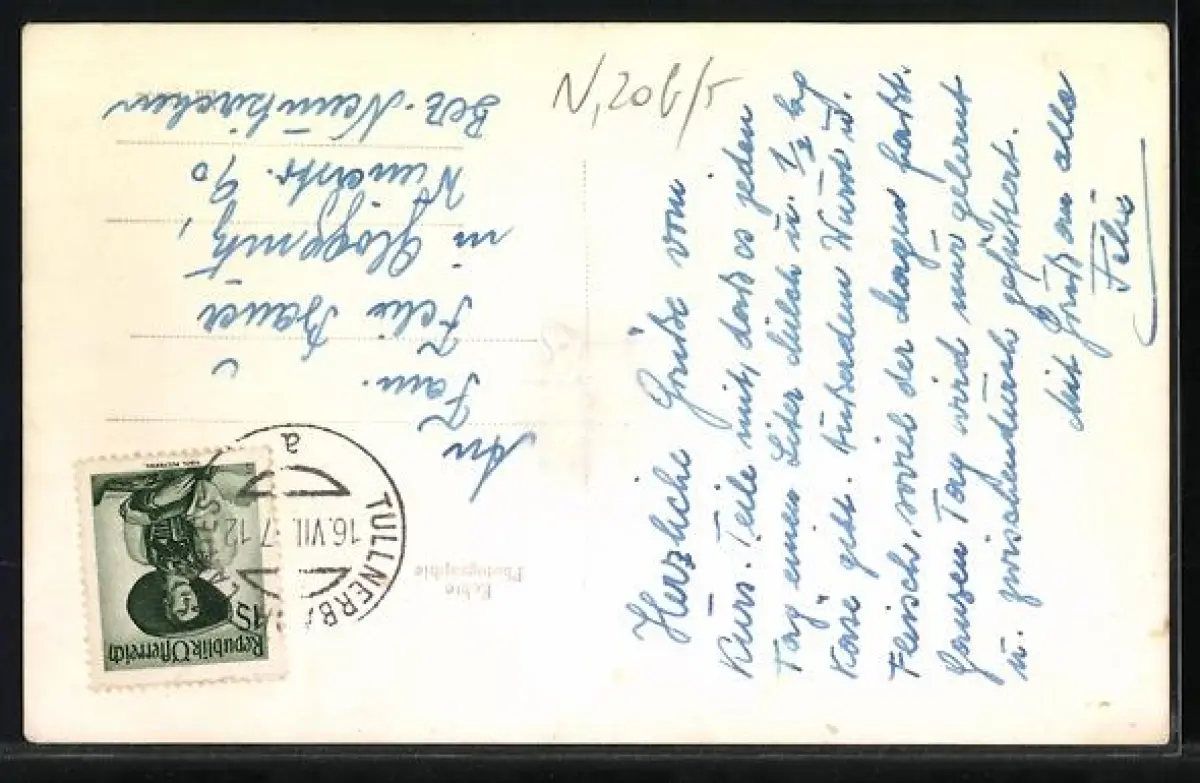 Herzliche Grüße vom
Kurs. Teile mit, daß es jeden
Tag einen Liter Milch u. 1/2 kg
Käse gibt. Außerdem Wurst u.
Fleisch, soviel der Magen faßt.
Ganzen Tag wird nur gelernt
u. zwischendurch gefüttert.
Mit Gruß an alle
Felix
N, 20 b/5
An
Fam.
Felix Bauer
in Gloggnitz,
90
Bez. Neunkirchen
Echte
Photographie
Republik Österreich
1S
TULLNERBA
16.VII. 7.12
a